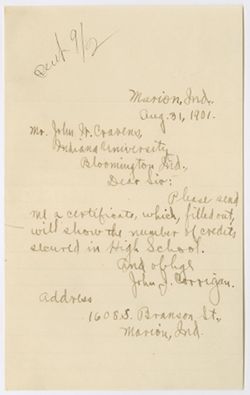 Sent 9/2
Marion, Ind.,
Aug. 31, 1901.
Mr. John W. Cravens,
Indiana University,
Bloomington, Ind.,
Dear Sir:
Please send
me a certificate, which, filled out,
will show the number of credits
secured in High School.
And oblige
John J. Corrigan.
Address
1608 S. Branson St.,
Marion, Ind.